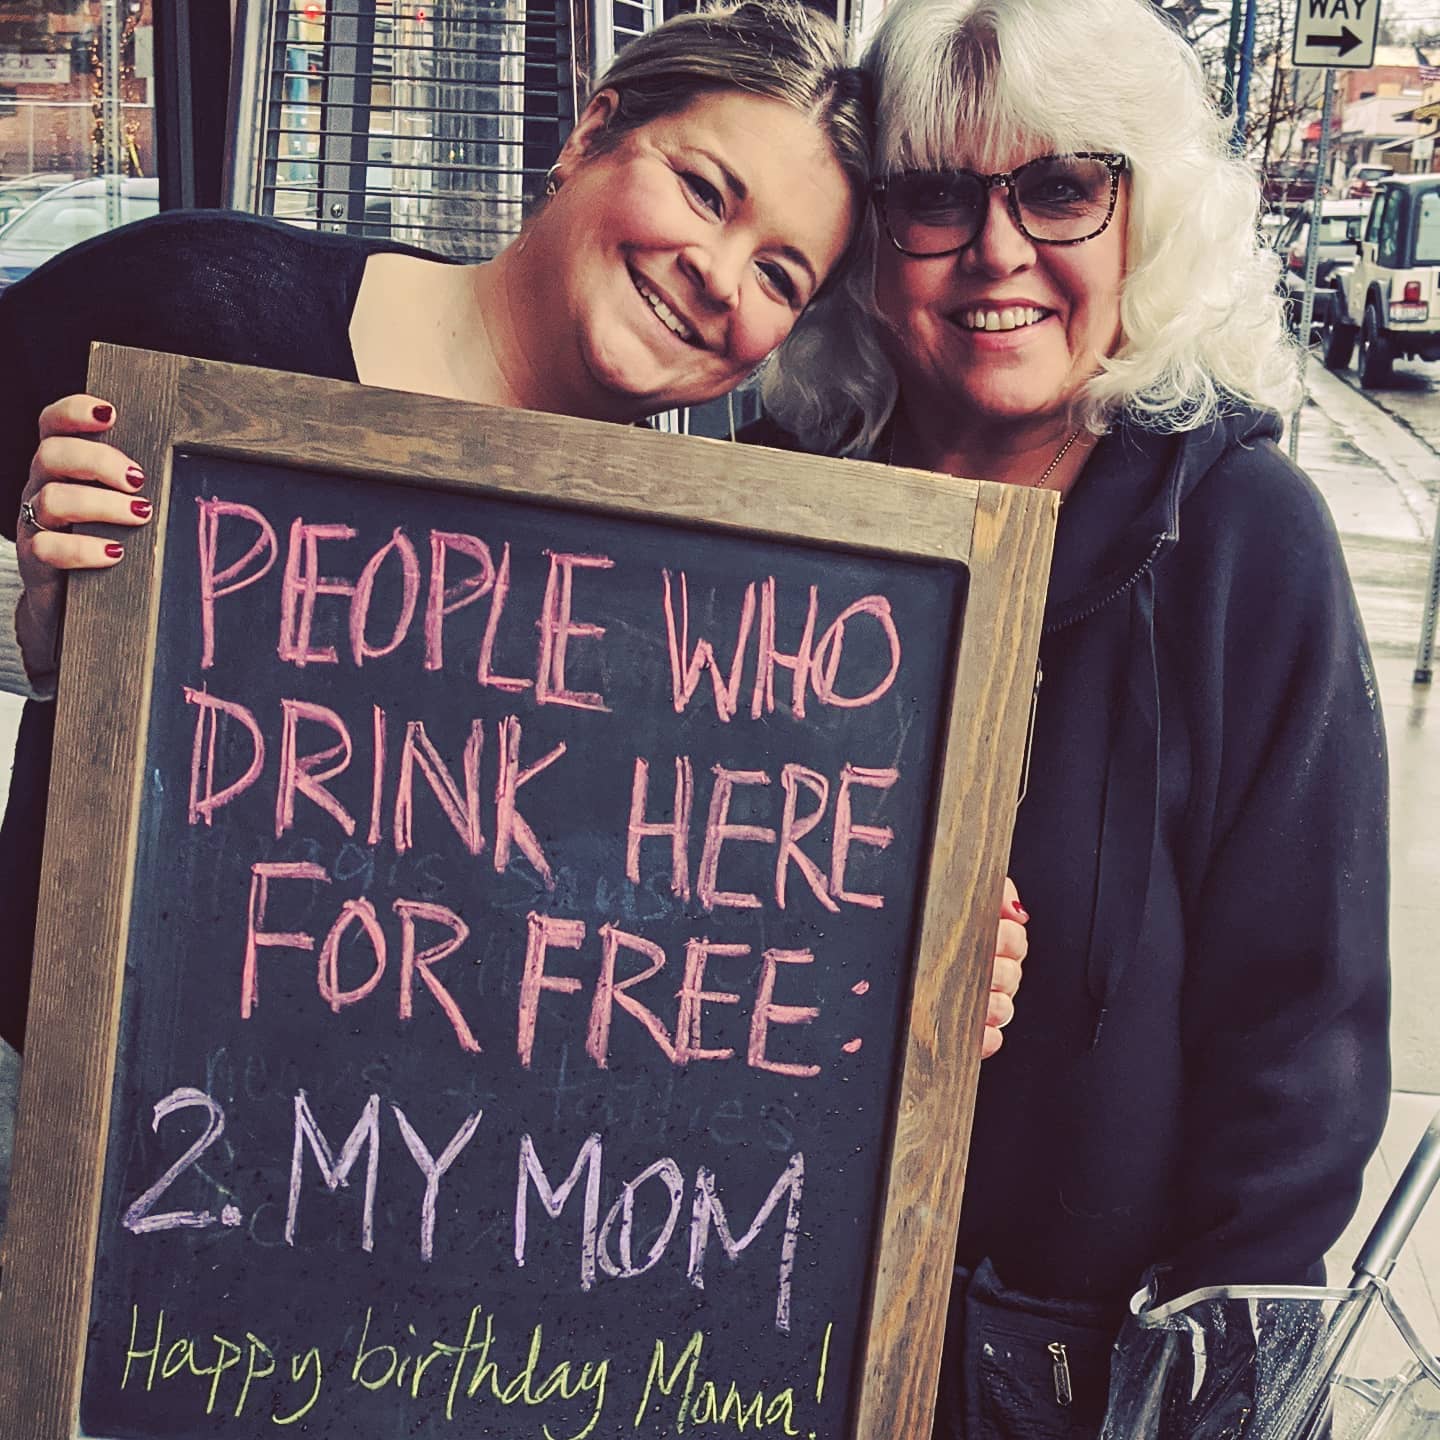 WAY
PEOPLE WHO
DRINK HERE
FOR FREE:
2. MY MOM
Happy birthday Mama!